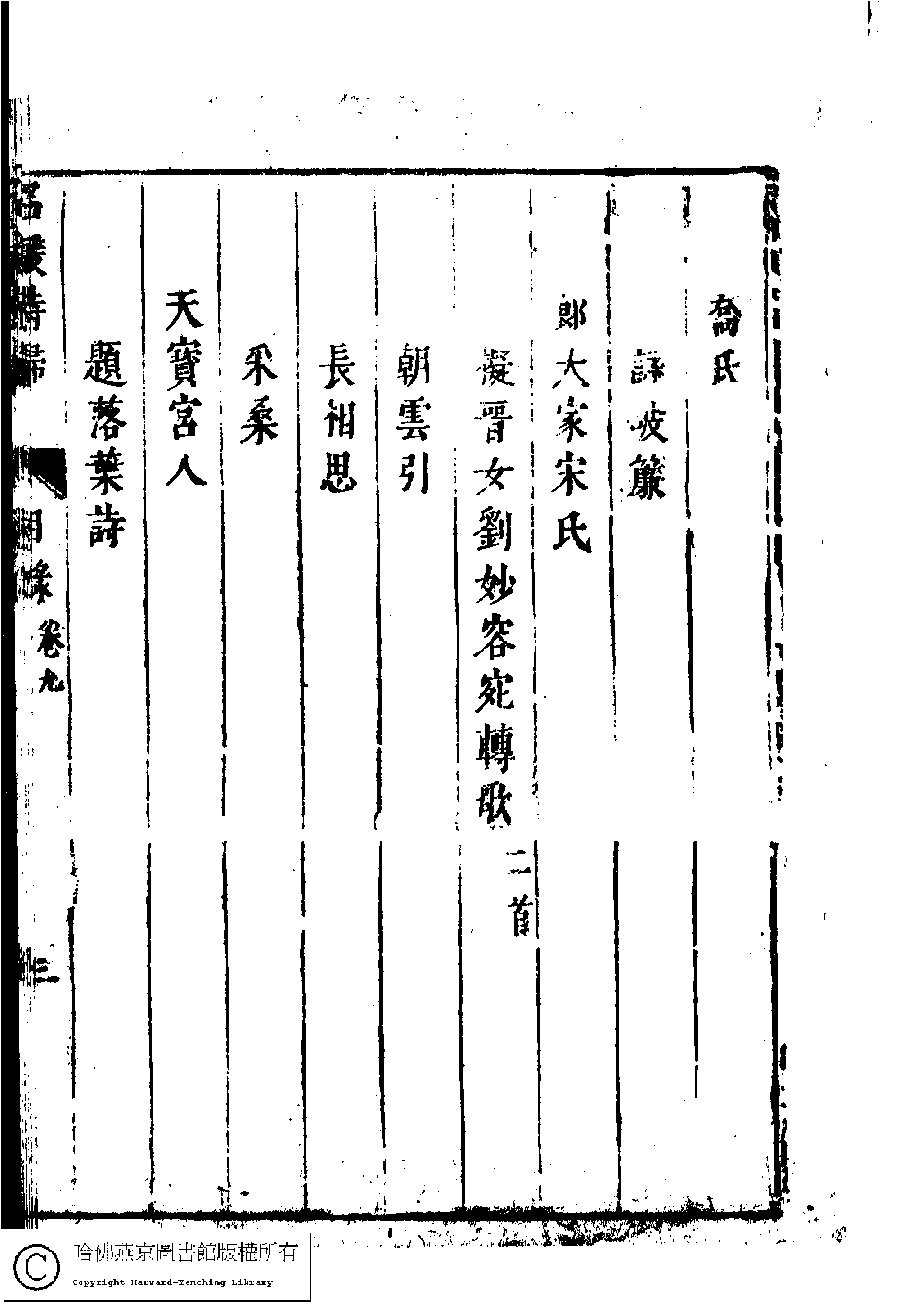 喬氏
詠破簾
郎大家宋氏
擬晉女劉妙容宛轉歌二首
朝雲引
長相思
采桑
天寶宮人
題落葉詩
名媛詩歸
目錄
卷九
三
哈佛燕京圖書館版權所有
Copyright Harvard-Yenching Library